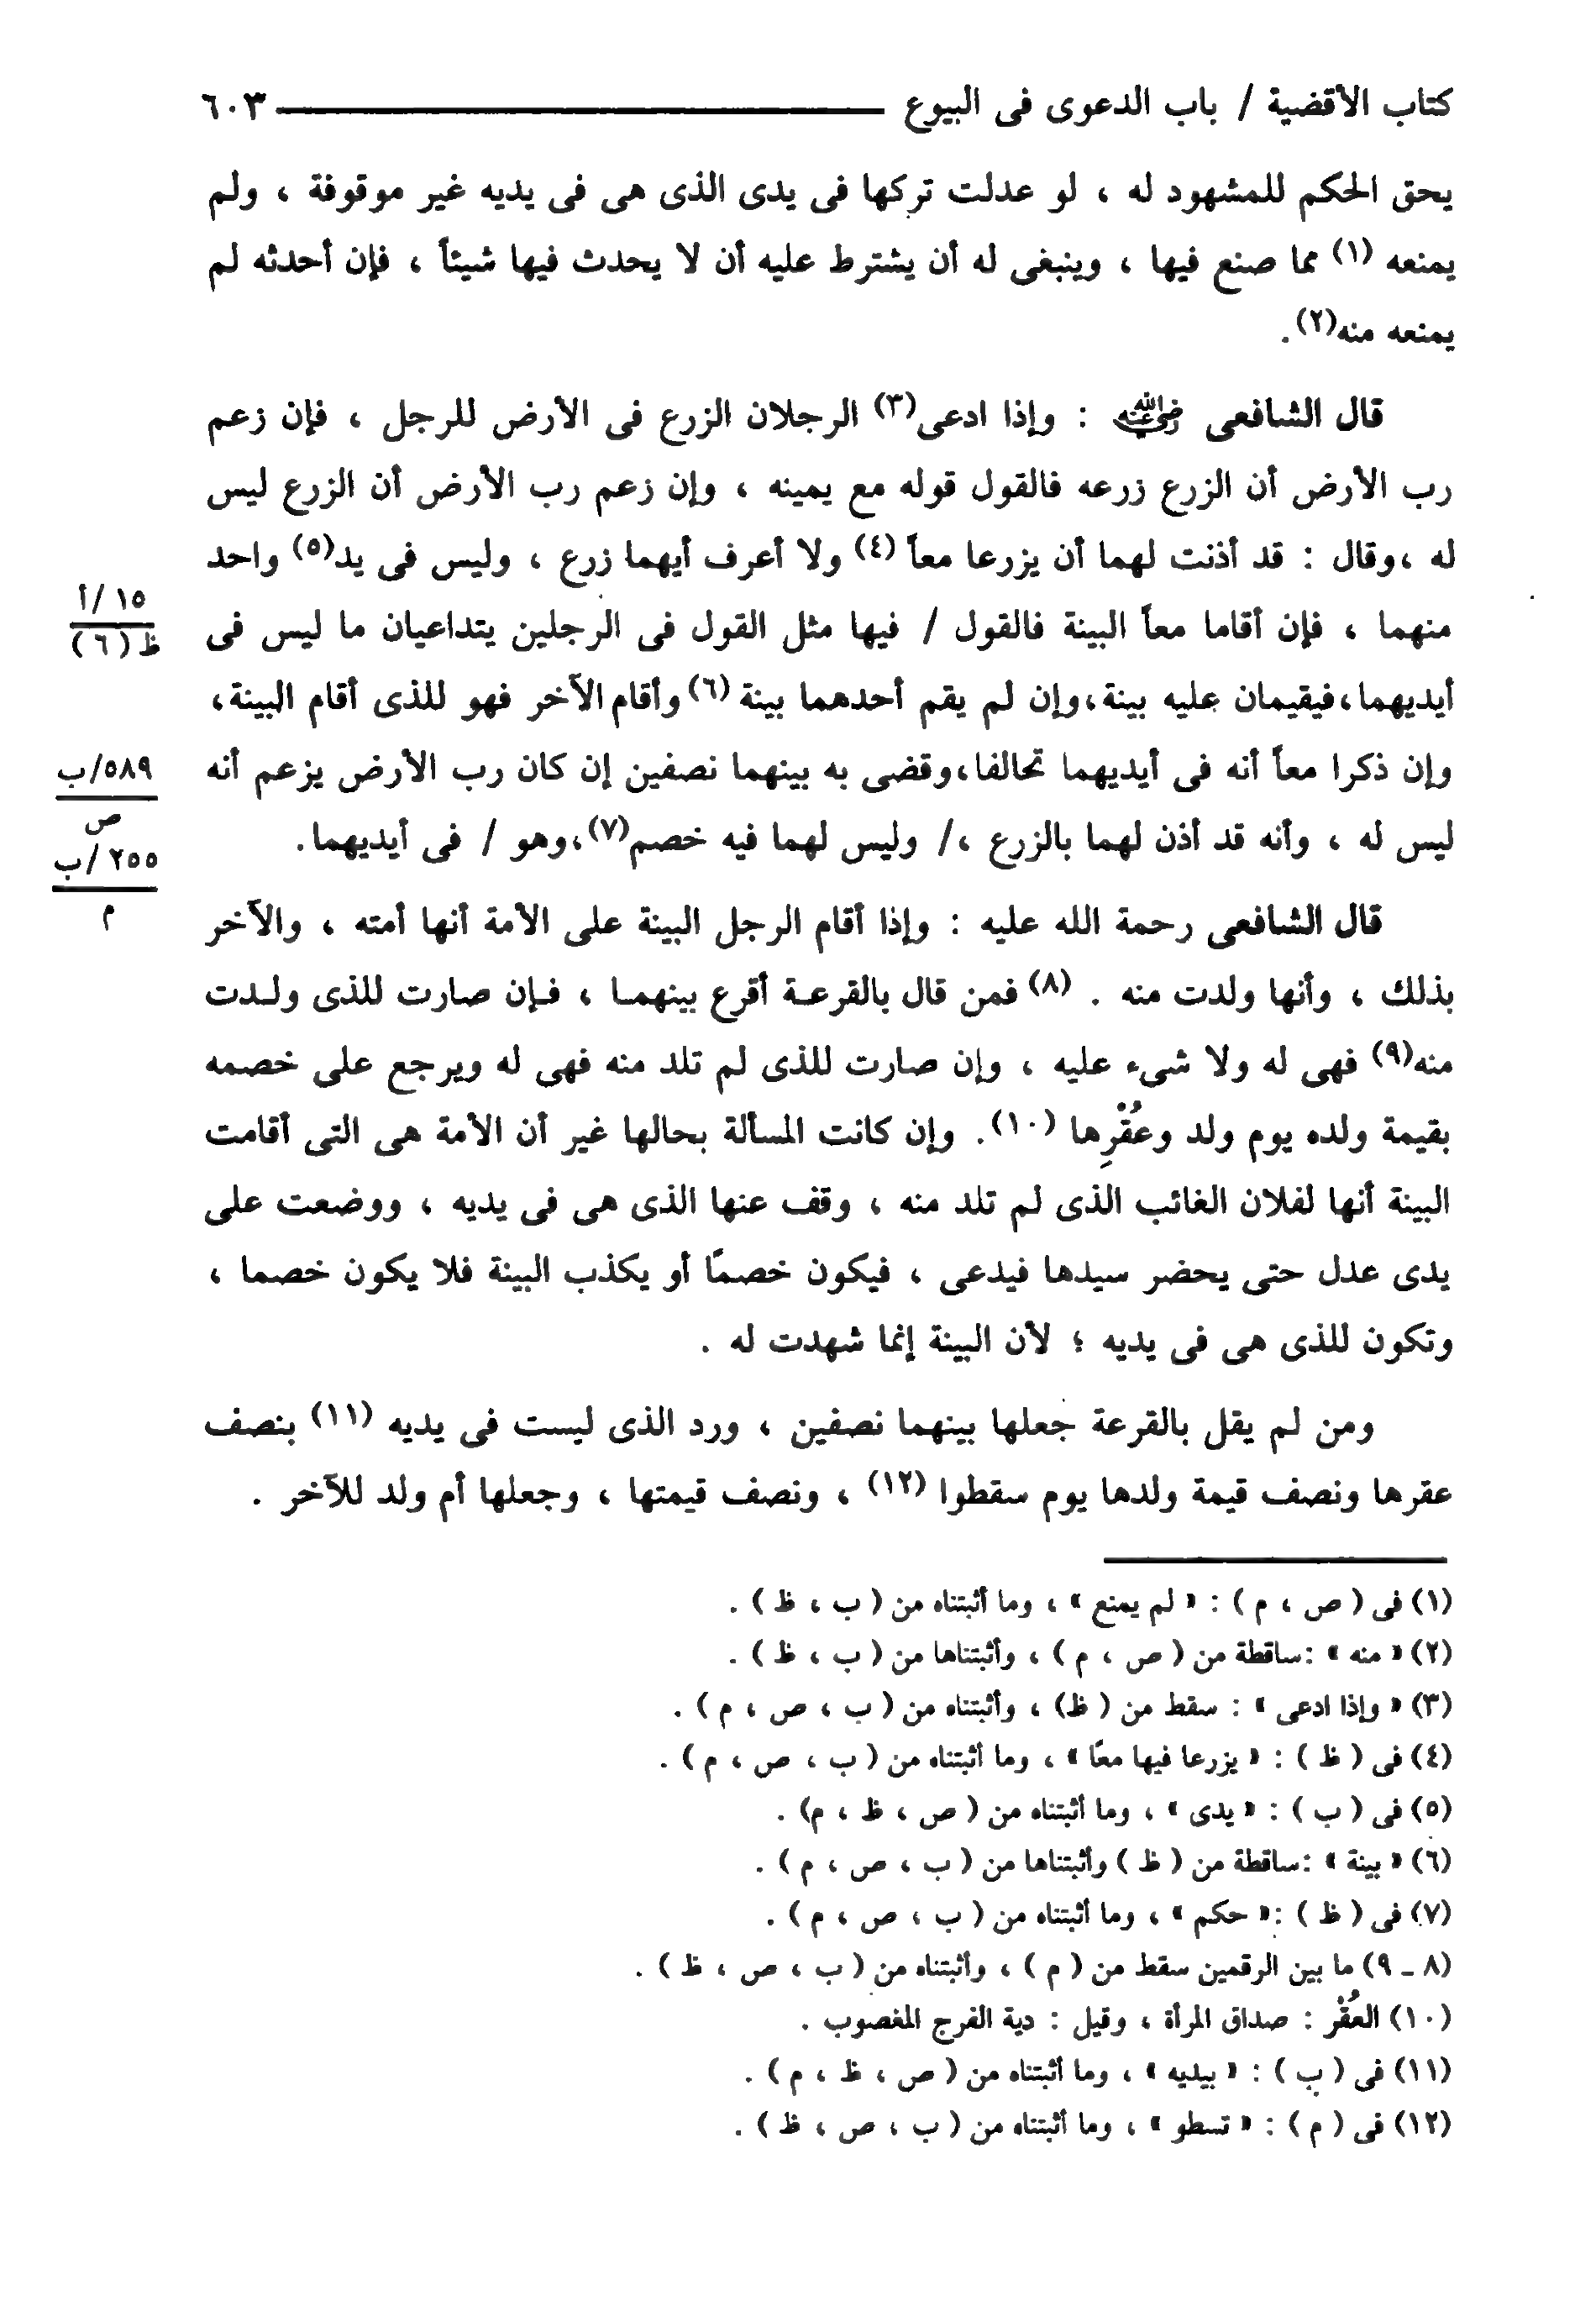 كتاب الأقضية / باب الدعوى فى البيوع ٦٠٣
يحق الحكم للمشهود له ، لو عدلت تركها فى يدى الذى هى فى يديه غير موقوفة ، ولم
يمنعه (١) مما صنع فيها ، وينبغى له أن يشترط عليه أن لا يحدث فيها شيئاً ، فإن أحدثه لم
يمنعه منه(٢).
قال الشافعى رضي الله عنه : وإذا ادعى(٣) الرجلان الزرع فى الأرض للرجل ، فإن زعم
رب الأرض أن الزرع زرعه فالقول قوله مع يمينه ، وإن زعم رب الأرض أن الزرع ليس
له ،وقال : قد أذنت لهما أن يزرعا معاً (٤) ولا أعرف أيهما زرع ، وليس فى يد(٥) واحد
منهما ، فإن أقاما معاً البينة فالقول / فيها مثل القول فى الرجلين يتداعيان ما ليس فى
١٥ /أ
ظ (٦)
أيديهما،فيقيمان عليه بينة،وإن لم يقم أحدهما بينة (٦) وأقام الآخر فهو للذى أقام البينة،
وإن ذكرا معاً أنه فى أيديهما تحالفا،وقضى به بينهما نصفين إن كان رب الأرض يزعم أنه
٥٨٩/ب
ص
ليس له ، وأنه قد أذن لهما بالزرع ،/ وليس لهما فيه خصم(٧)،وهو / فى أيديهما.
٢٥٥ /ب
م
قال الشافعى رحمة الله عليه : وإذا أقام الرجل البينة على الأمة أنها أمته ، والآخر
بذلك ، وأنها ولدت منه . (٨) فمن قال بالقرعـة أقرع بينهمـا ، فـإن صارت للذى ولـدت
منه(٩) فهى له ولا شىء عليه ، وإن صارت للذى لم تلد منه فهى له ويرجع على خصمه
بقيمة ولده يوم ولد وعُقْرِها (١٠). وإن كانت المسألة بحالها غير أن الأمة هى التى أقامت
البينة أنها لفلان الغائب الذى لم تلد منه ، وقف عنها الذى هى فى يديه ، ووضعت على
يدى عدل حتى يحضر سيدها فيدعى ، فيكون خصمًا أو يكذب البينة فلا يكون خصما ،
وتكون للذى هى فى يديه ؛ لأن البينة إنما شهدت له .
ومن لم يقل بالقرعة جعلها بينهما نصفين ، ورد الذى ليست فى يديه (١١) بنصف
عقرها ونصف قيمة ولدها يوم سقطوا (١٢) ، ونصف قيمتها ، وجعلها أم ولد للآخر .
(١) فى ( ص ، م ) : « لم يمنع » ، وما أثبتناه من ( ب ، ظ ) .
(٢) « منه » :ساقطة من ( ص ، م ) ، وأثبتناها من ( ب ، ظ ) .
(٣) « وإذا ادعى » : سقط من ( ظ) ، وأثبتناه من ( ب ، ص ، م ) .
(٤) فى ( ظ ) : « يزرعا فيها معًا » ، وما أثبتناه من ( ب ، ص ، م ) .
(٥) فى ( ب ) : « يدى » ، وما أثبتناه من ( ص ، ظ ، م) .
(٦) « بينة » :ساقطة من ( ظ ) وأثبتناها من ( ب ، ص ، م ) .
(٧) فى ( ظ ) :« حكم » ، وما أثبتناه من ( ب ، ص ، م ) .
(٨ ـ ٩) ما بين الرقمين سقط من ( م ) ، وأثبتناه من ( ب ، ص ، ظ ) .
(١٠) العُقْر : صداق المرأة ، وقيل : دية الفرج المغصوب .
(١١) فى ( ب ) : « بيديه » ، وما أثبتناه من ( ص ، ظ ، م ) .
(١٢) فى ( م ) : « تسطو » ، وما أثبتناه من ( ب ، ص ، ظ ) .